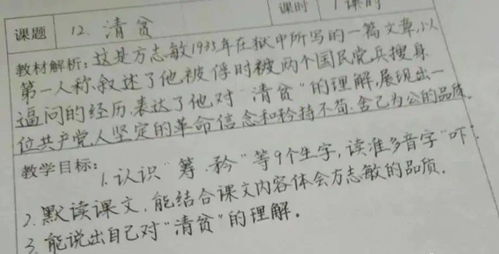 课时 1课时
课题 12.清贫
教材解析:这是方志敏1935年在狱中所写的一篇文章,以
第一人称,叙述了他被俘时被两个国民党兵搜身
逼问的经历,表达了他对“清贫”的理解,展现出一
位共产党人坚定的革命信念和矜持不苟、舍己为公的品质。
教学目标:1.认识“筹、矜”等9个生字,读准多音字“吓”。
2.默读课文,能结合课文内容体会方志敏的品质。
3.能说出自己对“清贫”的理解。